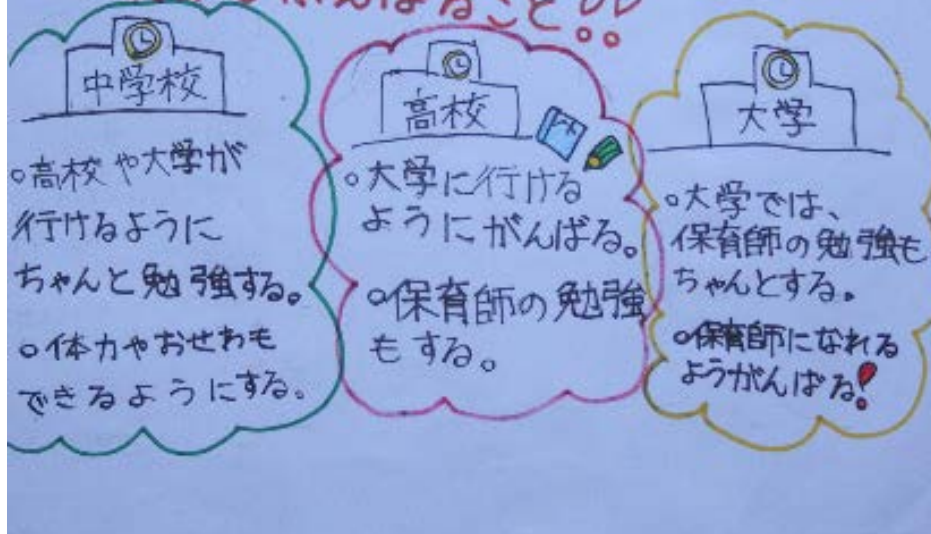 がんばること!!
中学校
。高校や大学が
行けるように
ちゃんと勉強する。
。体力やおせわも
できるようにする。
高校
。大学に行ける
ようにがんばる。
。保育師の勉強
もする。
大学
。大学では、
保育師の勉強も
ちゃんとする。
。保育師になれる
ようがんばる!